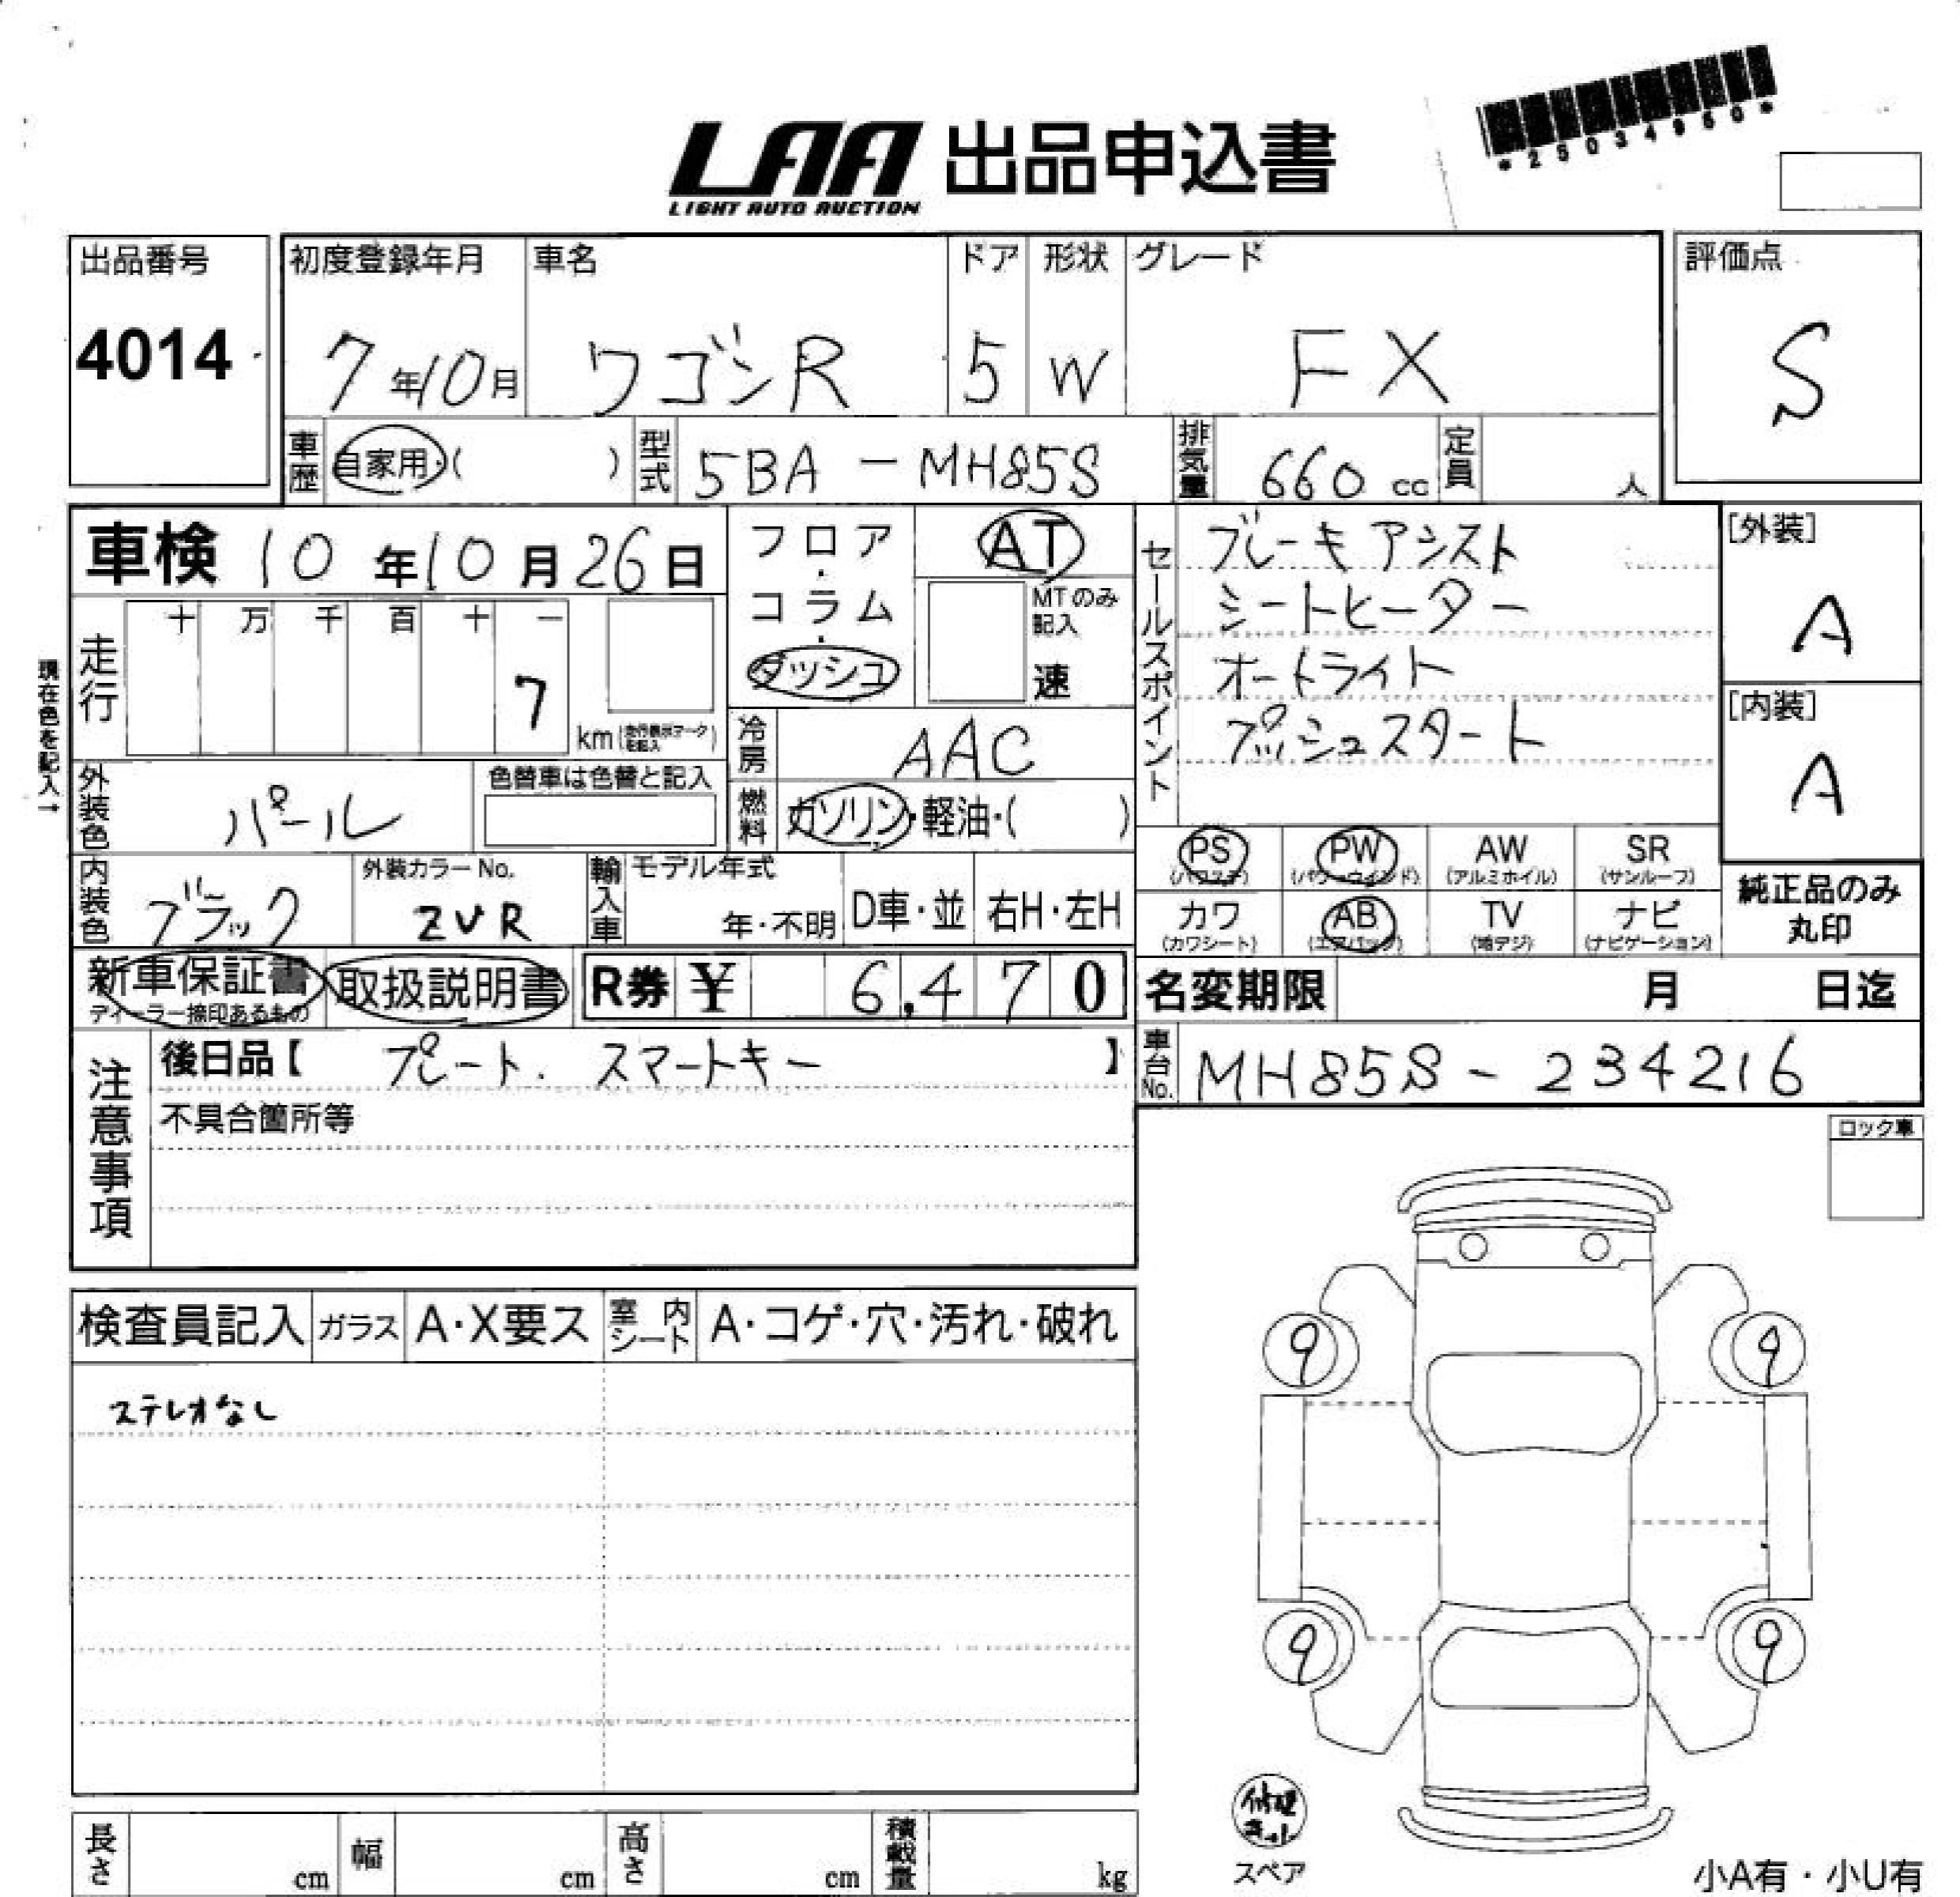 *25034950*
LAA 出品申込書
LIGHT AUTO AUCTION
出品番号 初度登録年月 車名 ドア 形状 グレード 評価点
4014 7年10月 ワゴンR 5 W FX S
車歴 自家用・( ) 型式 5BA-MH85S 排気量 660cc 定員 人
車検 10年10月26日 フロア・コラム・ダッシュ AT
MTのみ記入 速
セールスポイント
ブレーキアシスト
シートヒーター
オートライト
プッシュスタート
[外装]
A
[内装]
A
現在色を記入→
走行 十 万 千 百 十 一
7 km
冷房 AAC
外装色 パール 色替車は色替と記入
燃料 ガソリン・軽油・( )
PS (パワステ) PW (パワーウインド) AW (アルミホイル) SR (サンルーフ)
カワ (カワシート) AB (エアバック) TV (地デジ) ナビ (ナビゲーション)
純正品のみ
丸印
内装色 ブラック 外装カラーNo. ZVR 輸入車 モデル年式 年・不明 D車・並 右H・左H
新車保証書 取扱説明書 R券 ¥ 6,470 名変期限 月 日迄
ディーラー捺印あるもの
注意事項
後日品【 プレート. スマートキー 】
車台No. MH85S-234216
不具合箇所等
ロック車
検査員記入 ガラス A・X要ス 室内シート A・コゲ・穴・汚れ・破れ
ステレオなし
9 9
9 9
スペア
長さ cm 幅 cm 高さ cm 積載量 kg
小A有・小U有